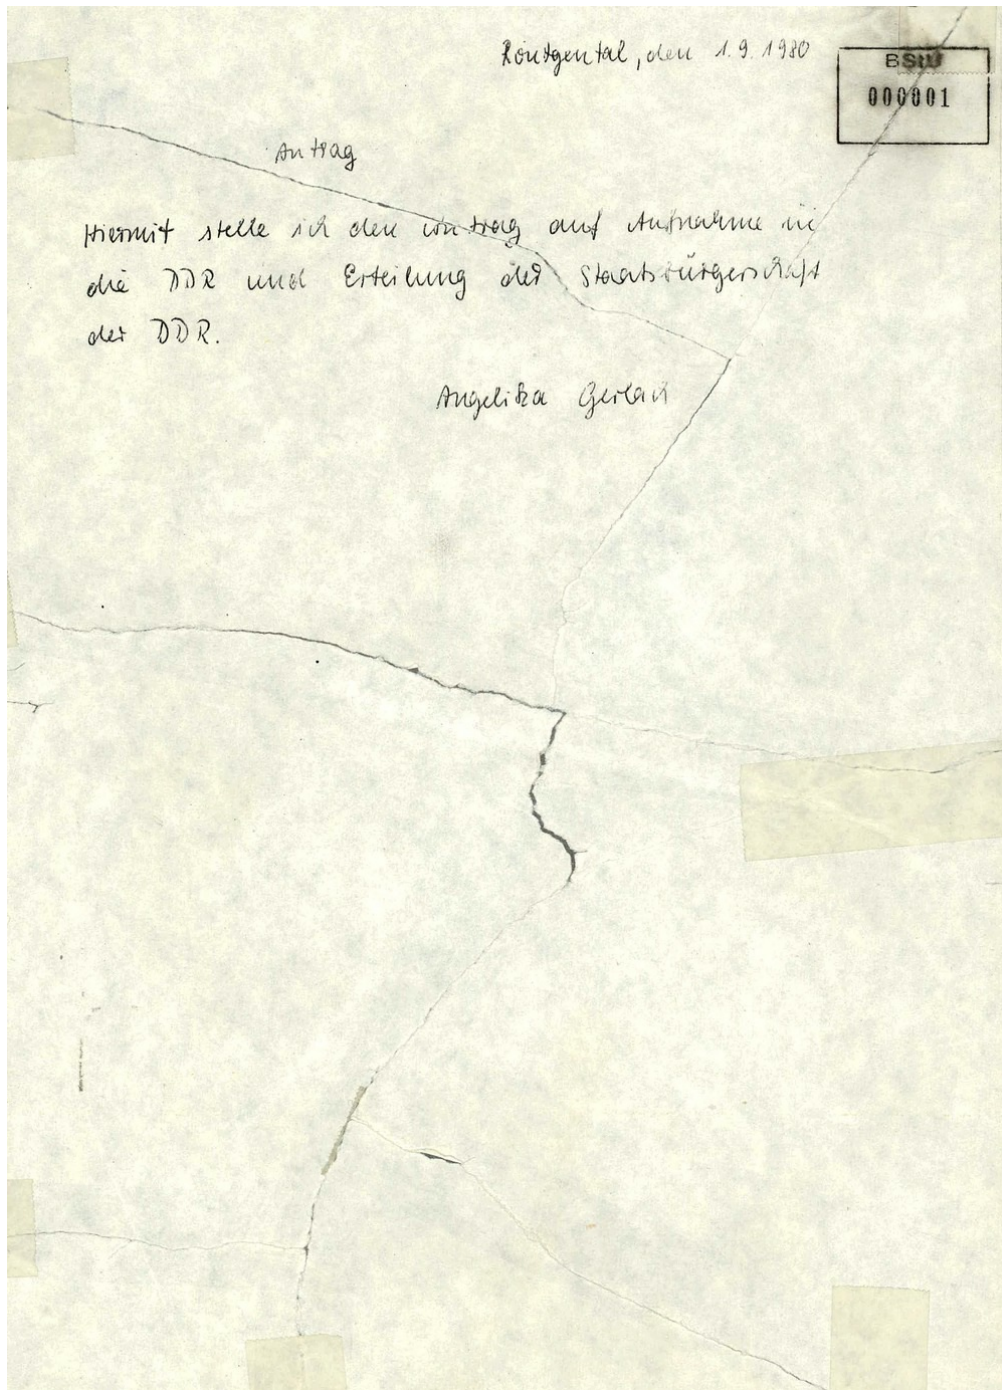 Röntgental, den 1.9.1980
BStU
000001
Antrag
Hiermit stelle ich den Antrag auf Aufnahme in
die DDR und Erteilung der Staatsbürgerschaft
der DDR.
Angelika Gerlach